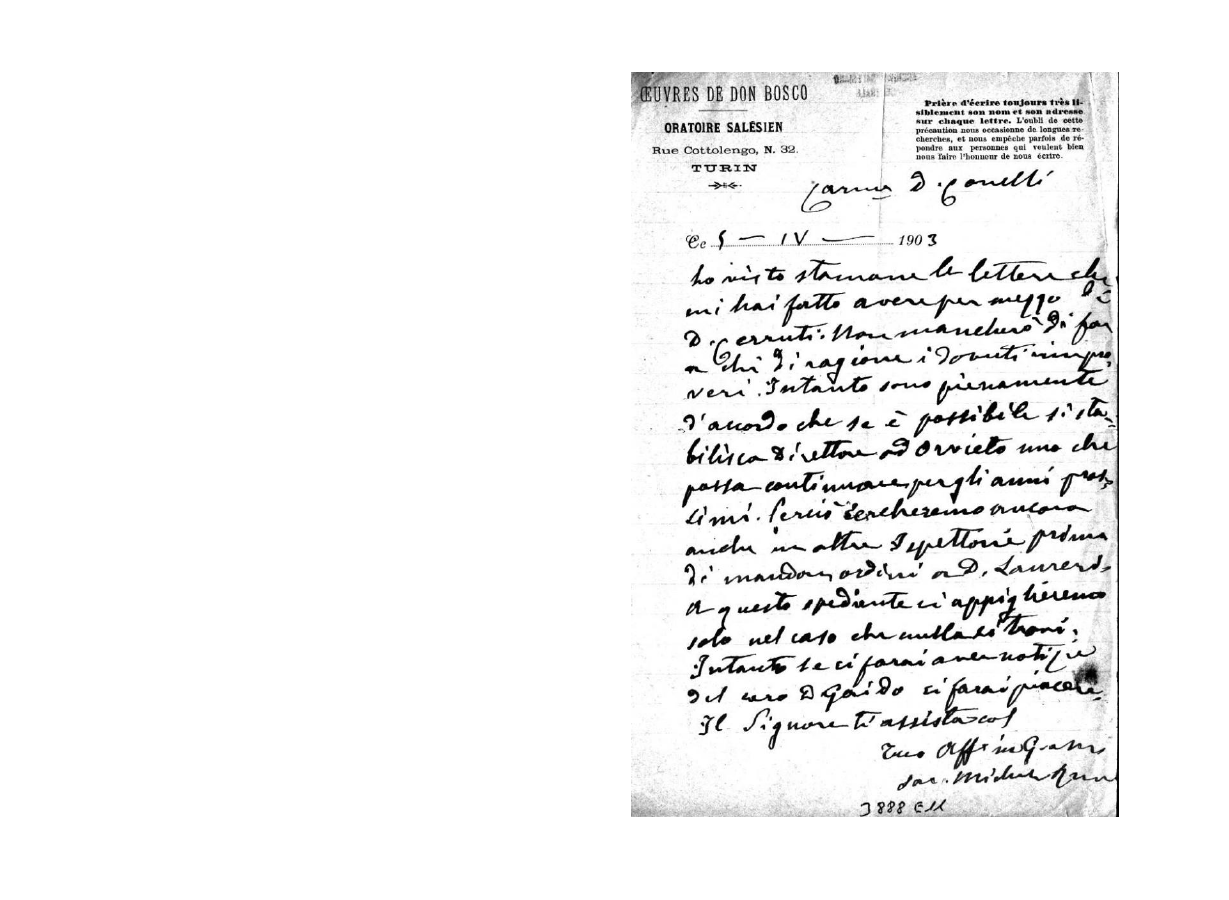 ŒUVRES DE DON BOSCO
ORATOIRE SALÉSIEN
Rue Cottolengo, N. 32.
TURIN
Prière d'écrire toujours très li-
siblement son nom et son adresse
sur chaque lettre. L'oubli de cette
précaution nous occasionne de longues re-
cherches, et nous empêche parfois de ré-
pondre aux personnes qui veulent bien
nous faire l'honneur de nous écrire.
D. Conelli
Ce 5 — IV — 1903
ho visto stamane le lettere che
mi hai fatto avere per mezzo di
D. Cerruti. Non mancherò di far
a chi di ragione i dovuti rimpro-
veri. Intanto sono pienamente
d'accordo che se è possibile si sta-
bilisca Direttore ad Orvieto uno che
possa continuare per gli anni pros-
simi. Perciò cercheremo ancora
anche in altre Ispettorie prima
di mandare ordini a D. Laureri.
A questo spediente ci appiglieremo
solo nel caso che nulla si trovi.
Intanto se ci farai aver notizie
del caro D Gaido ci farai piacere.
Il Signore ti assista col
Tuo Aff in G
Sac. Michele Rua
3888 E11